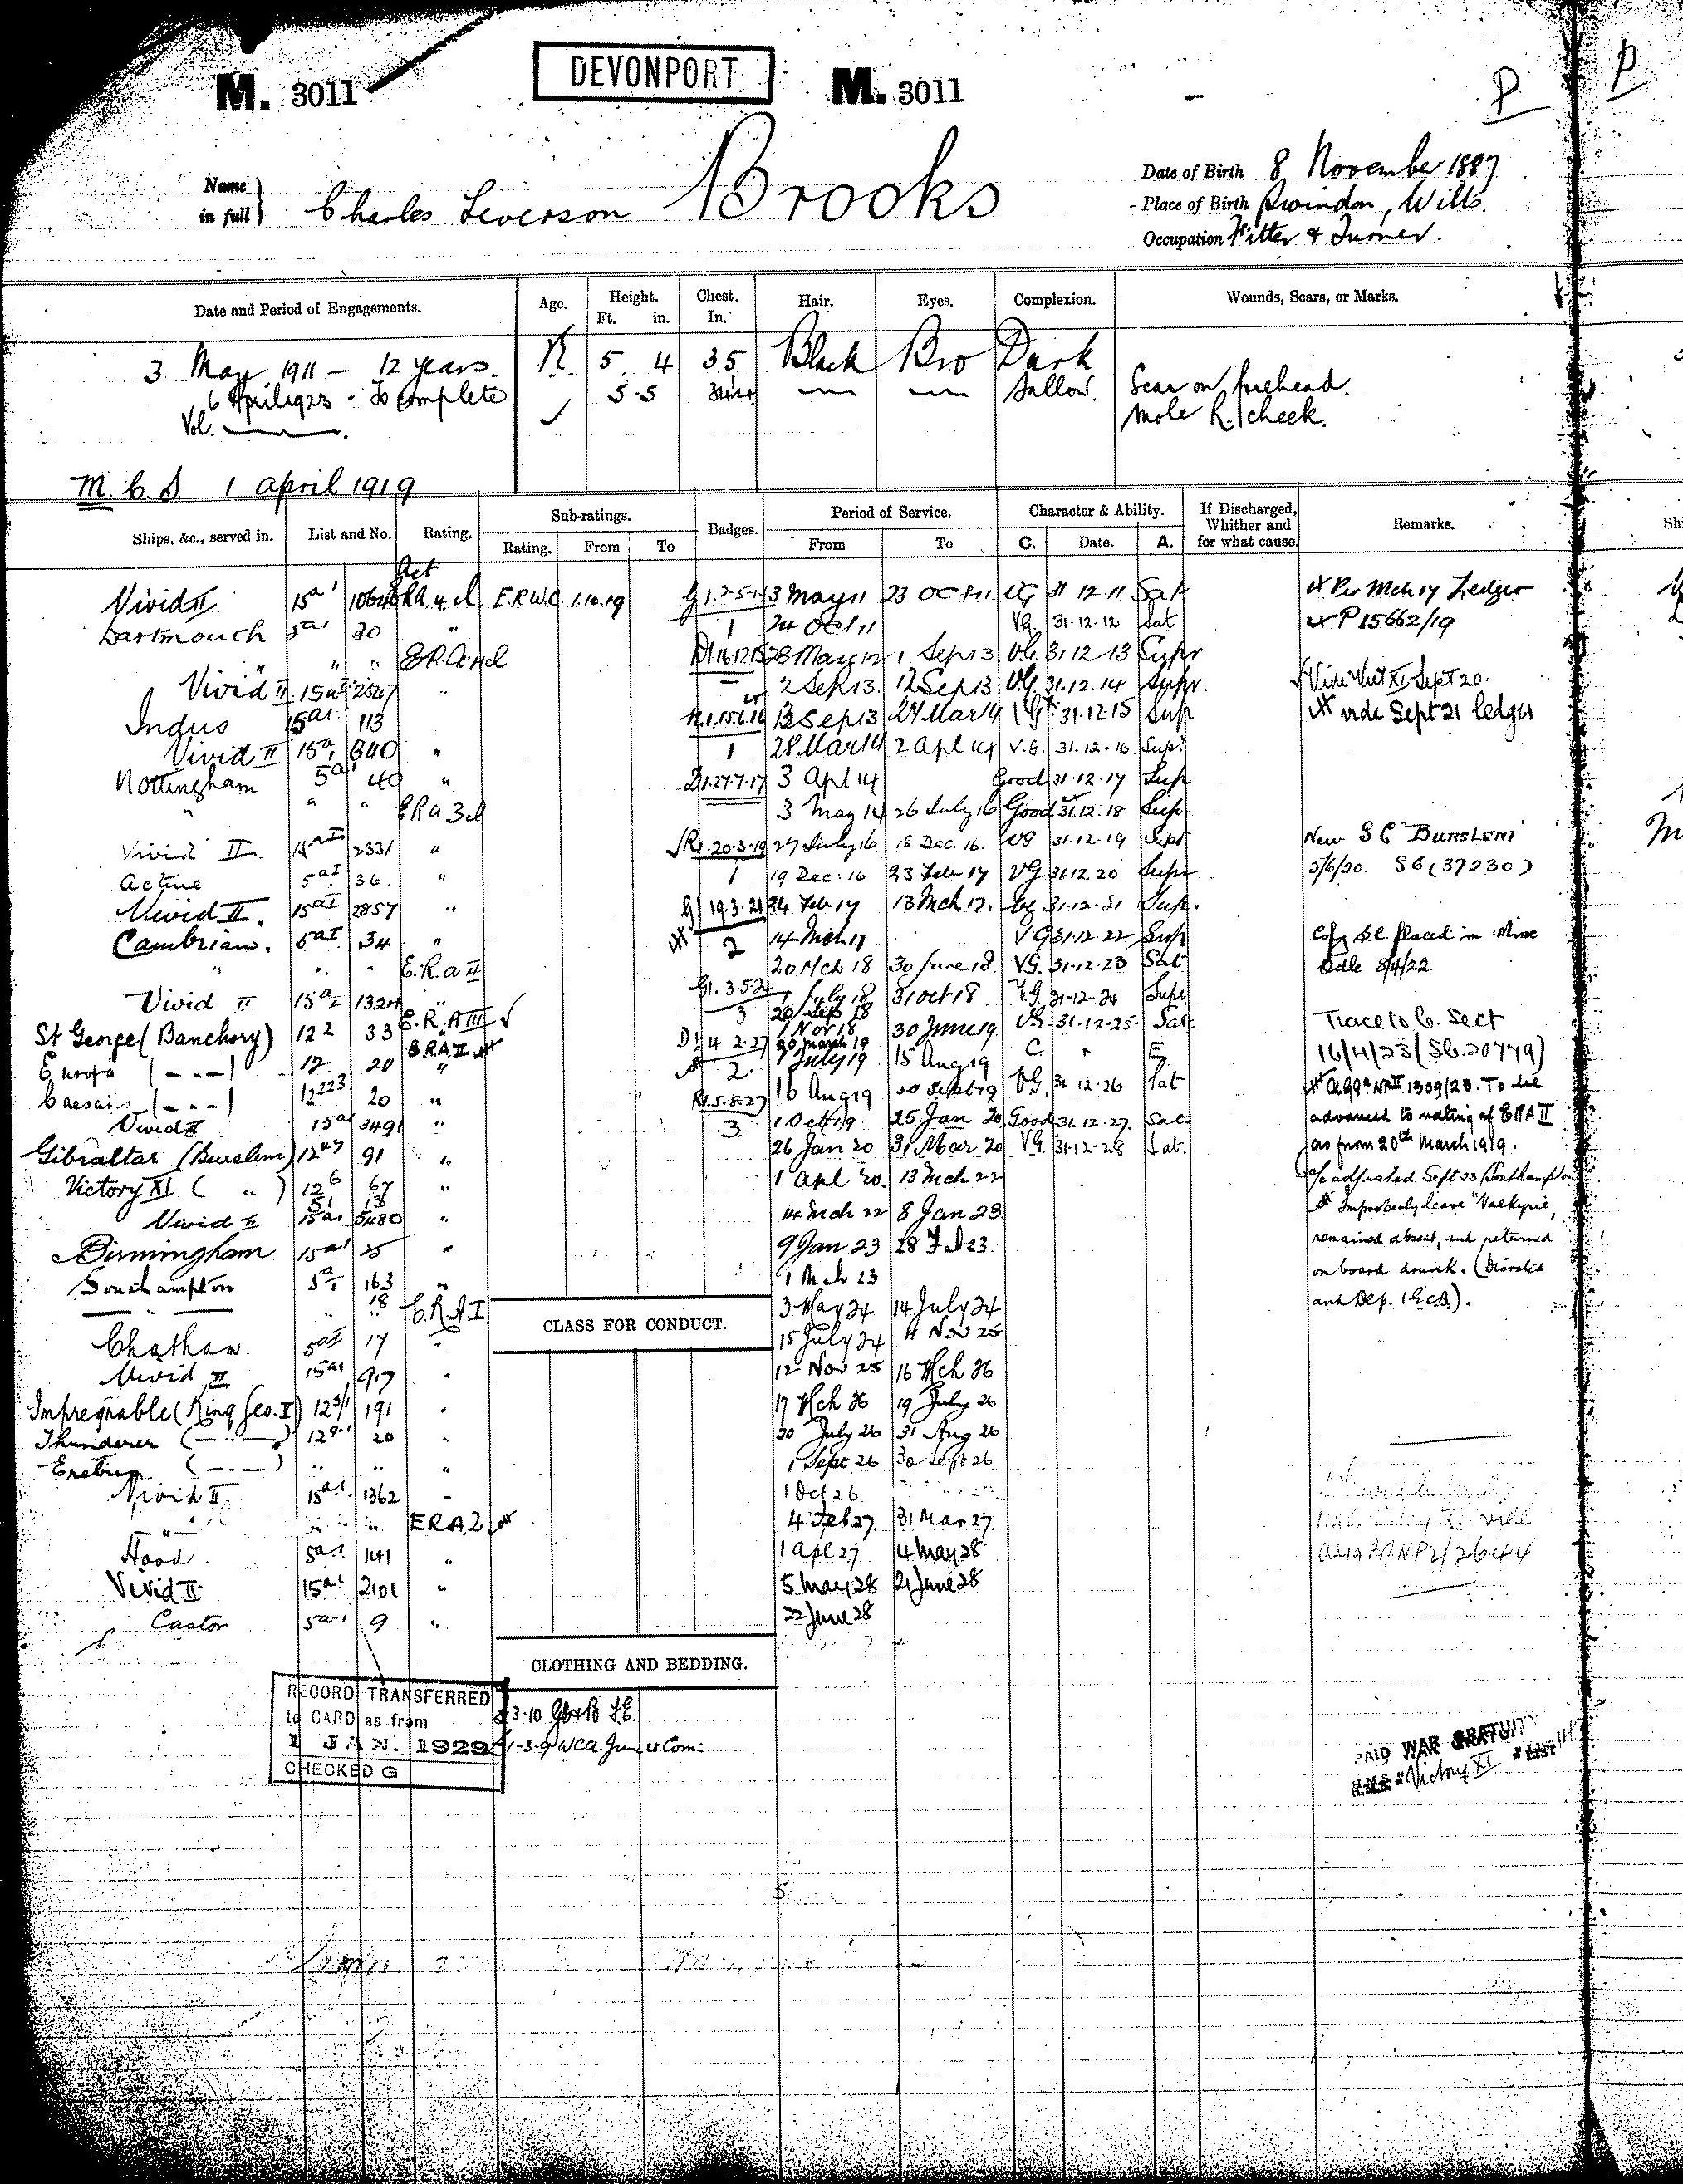 M. 3011 DEVONPORT M. 3011
P P
Name in full } Charles Leverson Brooks
Date of Birth 8 November 1887
Place of Birth Swindon, Wilts.
Occupation Fitter & Turner.
Date and Period of Engagements. Age. Height. Ft. in. Chest. In. Hair. Eyes. Complexion. Wounds, Scars, or Marks.
3 May 1911 - 12 years. 5 4 35 Black Bro Dark
6 April 1923 - To complete 5-5 Sallow. Scar on forehead.
Vol. Mole R. cheek.
M.C.S 1 April 1919
Ships, &c., served in. List and No. Rating. Sub-ratings. Rating. From To Badges. Period of Service. From To Character & Ability. C. Date. A. If Discharged, Whither and for what cause. Remarks.
Act
Vivid II 15a1 ERA 4 cl E.R.W.C 1.10.19 3 May 11 23 Oct 11 VG 31 12 11 Sat Per Mch 17 Ledger
Dartmouth 5a1 30 " 1 24 Oct 11 VG. 31-12-12 Sat P15662/19
" " " E.R.A. 4 cl 28 May 12 1 Sep 13 V.G. 31 12 13 Supr
Vivid II 15a1 2527 " 2 Sep 13. 12 Sep 13 V.G. 31.12.14 Supr. Sept 20.
Indus 15a1 113 13 Sep 13 27 Mar 14 VG 31.12.15 Sup vide Sept 21 ledger
Vivid II 15a1 340 " 1 28 Mar 14 2 Apl 14 V.G. 31.12.16 Sup.
Nottingham 5a1 40 " D1.27.7.17 3 Apl 14 Good 31.12.17 Sup
" " " ERA 3 cl 3 May 14 26 July 16 Good 31.12.18 Sup
Vivid II 15aI 2331 " R1.20.3.19 27 July 16 18 Dec. 16. VG 31.12.19 Supr New S C "BURSLEM"
Active 5aI 36 " 1 19 Dec. 16 23 Feb 17 VG 31.12 20 Supr 5/6/20. SC (37230)
Vivid II. 15aI 2857 " G1 19.3.21 24 Feb 17 13 Mch 17. VG 31.12.21 Sup.
Cambrian. 5aI 34 " 2 14 Mch 17 VG 31.12.22 Sup Copy S.C. placed in Misc
" " " E.R.A II 20 Mch 18 30 June 18. VG. 31-12-23 Sat. Bdle 8/4/22
Vivid II 15a1 1324 " G1.3.5.2 1 July 18 31 Oct 18 V.G. 31-12-24 Supr
E.R.A III 3 20 Sep 18
St George (Banchory) 12 2 33 " 1 Nov 18 30 June 19. VG. 31-12-25. Sat. Trace to C. Sect
E.R.A II D1 4 2-27 20 March 19
Europa ( - " - ) 12 20 " 2. 1 July 19 15 Aug 19 C. " E 16/4/23 (SC.20779)
Caesar ( - " - ) 12 223 20 " R1.5.8.27 16 Aug 19 30 Sept 19 VG. 31 12.26 Sat 1309/23. To be
Vivid II 15a1 3491 " 3 1 Oct 19 25 Jan 20 Good 31.12-27. Sat advanced to rating of ERA II
Gibraltar (Burslem) 12 47 91 " 26 Jan 20 31 Mar 20 V.G. 31-12-28 Sat. as from 20th March 1919.
Victory XI ( " ) 12 6 67 " 1 Apl 20. 13 Mch 22 a/c adjusted Sept 23 Southampton
51 13
Vivid II 15a1 5480 " 14 Mch 22 8 Jan 23 Improperly leave "Valkyrie,
Birmingham 15a1 25 " 9 Jan 23 28 Feb 23. remained absent, and returned
Southampton 5a1 163 " 1 Mch 23 on board drunk. (Disrated
" 18 E.R.A I 3 May 24 14 July 24 and Dep. 1 G.C.B.).
Chatham 5aI 17 " 15 July 24 11 Nov 25
Vivid II 15a1 917 " 12 Nov 25 16 Mch 26
Impregnable (King Geo. V) 12 3/1 191 " 17 Mch 26 19 July 26
Thunderer ( - " - ) 20 " 20 July 26 31 Aug 26
Erebus ( - " - ) " " " 1 Sept 26 30 Sept 26
Vivid II 15a1 1362 " 1 Oct 26
" " " ERA 2 4 Feb 27. 31 Mar 27.
Hood 5a1 141 " 1 Apl 27 4 May 28
Vivid II 15a1 2101 " 5 May 28 21 June 28
Castor 5a1 9 " 22 June 28
CLASS FOR CONDUCT.
CLOTHING AND BEDDING.
RECORD TRANSFERRED
to CARD as from
1 JAN. 1929
CHECKED G
PAID WAR GRATUITY
H.M.S. "Victory XI" LIST